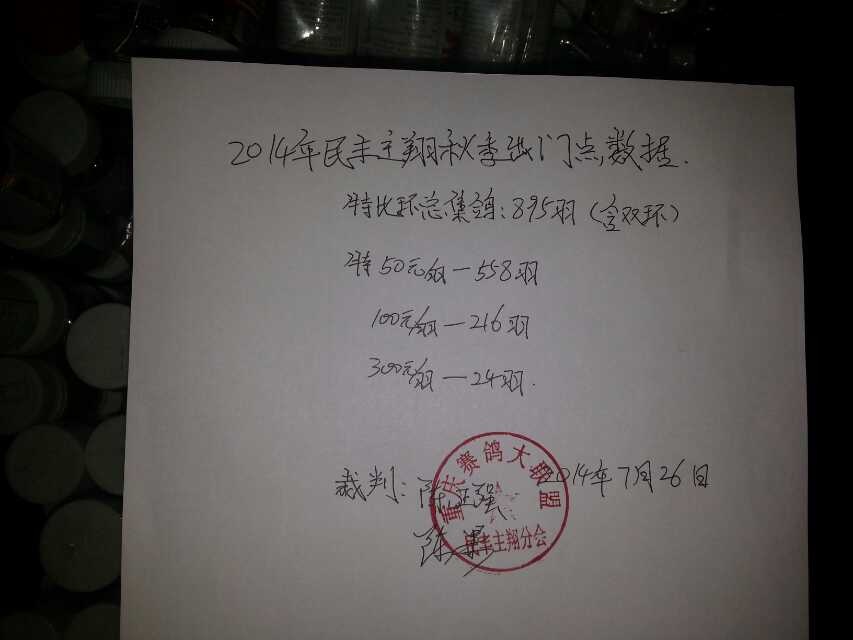 2014年民丰主翔秋季出门点数据.
特比环总集鸽:895羽(含双环)
特50元组—558羽
100元/组—216羽
300元/组—24羽.
裁判:陈正强 2014年7月26日
陈勇
重庆赛鸽大联盟
民丰主翔分会